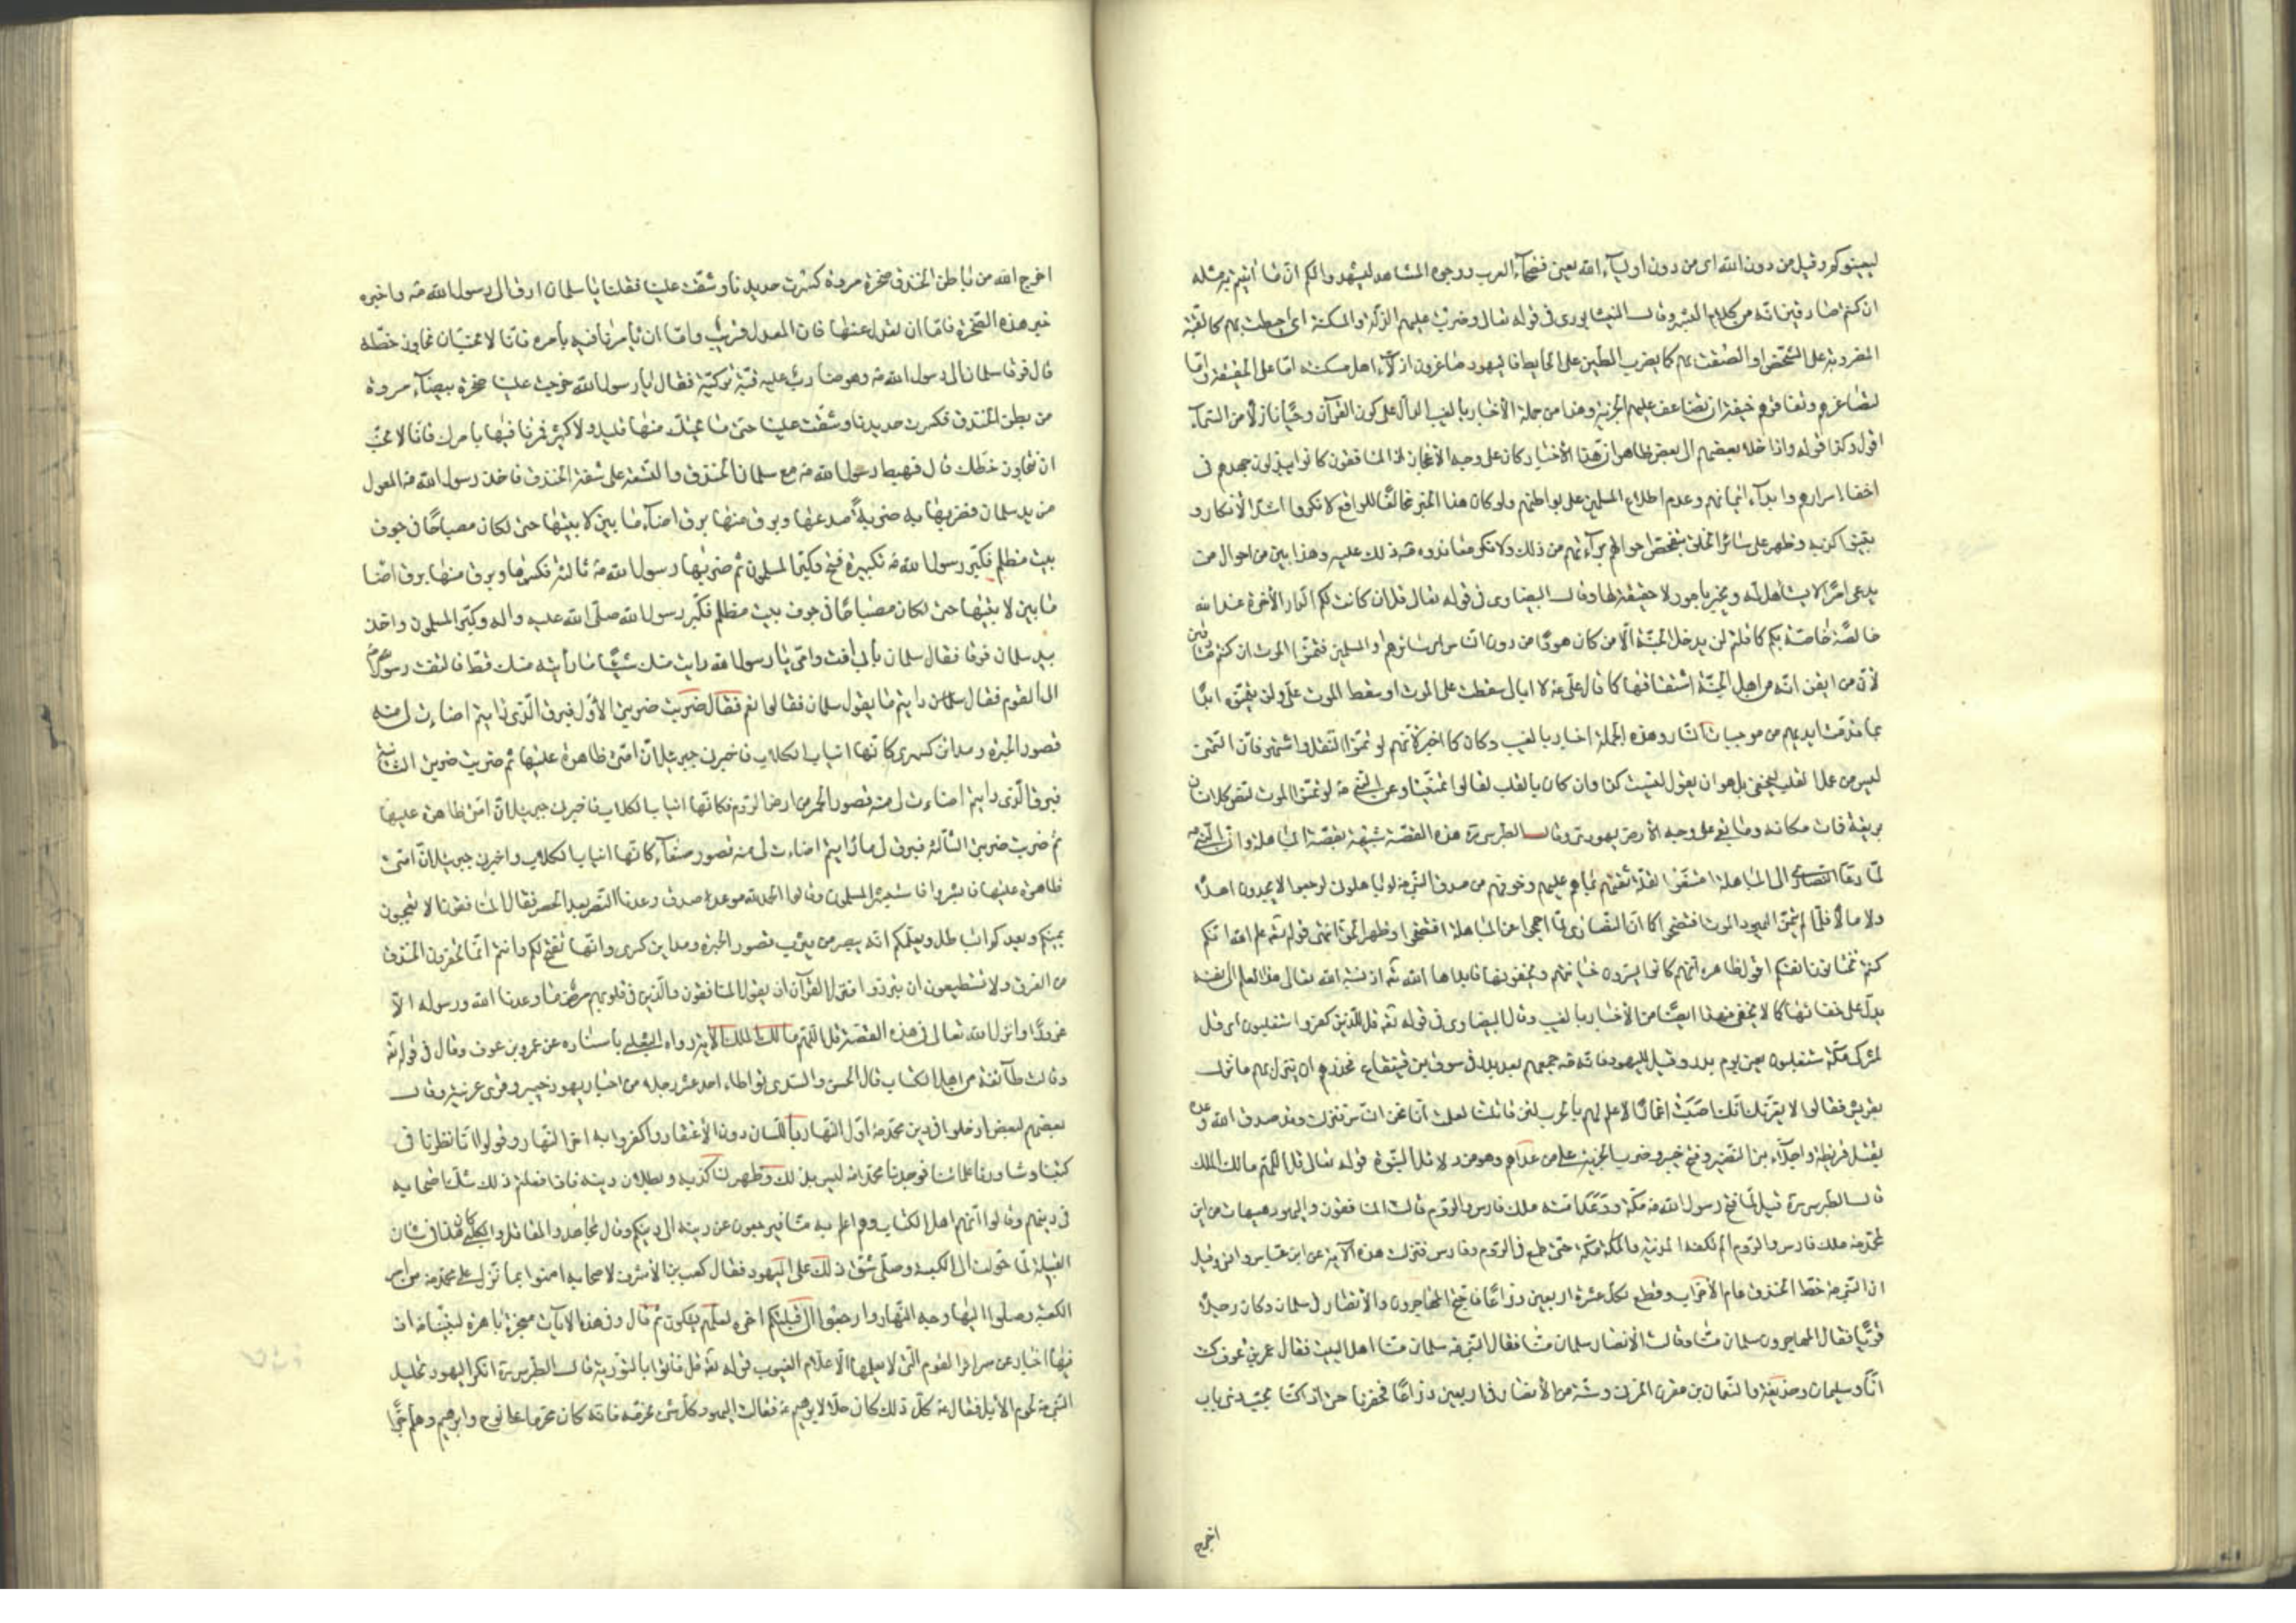 ليعينوكم وقيل من دون الله اى من دون اولياء الله يعنى فصحاء العرب ووجوه المشاهد ليشهدوا لكم ان ما اتيتم به مثله
ان كنتم صادقين انه من كلام البشر وقال النيشابورى فى قوله تعالى وضربت عليهم الذلة والمسكنة اى احيطت بهم كالقبة
المضروبة على الشخص او الصقت بهم كما يضرب الطين على الحايط فاليهود صاغرون اذلاء اهل مسكنة اما على الحقيقة واما
لتصاغرهم وتفاقرهم خيفة ان تضاعف عليهم الجزية وهذا من جملة الأخبار بالغيب الدال على كون القرآن وحيا نازلا من السماء
اقول وكذا قوله واذا خلا بعضهم الى بعض ظاهر ان هذا الأخبار كان على وجه الأعجاز لان المنافقون كانوا يبذلون جهدهم فى
اخفاء اسرارهم وابداء ايمانهم وعدم اطلاع المسلمين على بواطنهم ولو كان هذا الخبر مخالفا للواقع لانكروا اشد الأنكار و
يقينى اكذبه وظهر على سائر الخلق بتفحص احوالهم براءتهم من ذلك ولانكر معاندوه صه ذلك عليه وهذا بين من احوال من
يدعى امرا لا يستأهل له ويخبر بامور لا حقيقة لها وقال البيضاوى فى قوله تعالى قل ان كانت لكم الدار الأخرة عند الله
خالصة خاصة بكم كما قلتم لن يدخل الجنة الا من كان هودا من دون الناس سائرهم او المسلمين فتمنوا الموت ان كنتم صادقين
لأن من ايقن انه من اهل الجنة اشتقاقها كما قال على عه لا ابالى سقطت على الموت او سقط الموت على ولن يتمنوه ابدا
بما قدمت ايديهم من موجبات النار وهذه الجملة اخبار بالغيب وكان كما اخبر لأنهم لو تمنوا لنقلوا واشتهر فان التمنى
ليس من عمل القلب ليخفى بل هو ان يقول ليت كذا وان كان بالقلب لقالوا تمنينا وعن النبى صه لو تمنوا الموت لغص كل انسان
بريقه فمات مكانه وما بقى على وجه الأرض يهودى وقال الطبرسى ره هذه القصة شبيهة بقصة المباهلة وان النبى صه
لما دعا النصارى الى المباهلة امتنعوا لقلة ثقتهم بما هم عليهم وخوفهم من صدق النبى صه لو باهلونى لرجعوا لا يجدون اهلا
ولا مالا فلما لم يتمن اليهود الموت افتضحوا كما ان النصارى لما احجموا عن المباهلة افتضحوا وظهر الحق انتهى قوله تعه علم الله انكم
كنتم تختانون انفسكم اقول ظاهره انهم كانوا يسترون خيانتهم ويخفونها فابداها الله تعه اذ نسبة الله تعالى هذا العلم الى نفسه
يدل على خفائها كما لا يخفى فهذا ايضا من الأخبار بالغيب وقال البيضاوى فى قوله تعه قل للذين كفروا ستغلبون اى قل
لمشركى مكة ستغلبون يعنى يوم بدر وقيل لليهود فانه صه جمعهم بعد بدر فى سوق بنى قينقاع فحذرهم ان ينزل بهم ما نزل
بقريش فقالوا لا يغرنك انك اصبت اغمارا لا علم لهم بالحرب لئن قاتلتنا لعلمت انا نحن الناس فنزلت وقد صدق الله وعده
بقتل قريظة واجلاء بنى النضير وفتح خيبر وضرب الجزية على من عداهم وهو من دلائل النبوة قوله تعالى قل اللهم مالك الملك
قال الطبرسى ره قيل لما فتح رسول الله صه مكة ووعد امته ملك فارس والروم قالت المنافقون واليهود هيهات من اين
لمحمد صه ملك فارس والروم الم تكفه المدينة والمكة مكة حتى طمع فى الروم وفارس فنزلت هذه الآية عن ابن عباس وانس وقيل
ان النبى صه خط الخندق عام الأحزاب وقطع لكل عشرة اربعين ذراعا فاحتج المهاجرون والأنصار فى سلمان وكان رجلا
قويا فقال المهاجرون سلمان منا وقالت الأنصار سلمان منا فقال النبى صه سلمان منا اهل البيت فقال عمرو بن عوف كنت
انا وسلمان وحذيفة والنعمان بن مقرن المزنى وستة من الأنصار فى اربعين ذراعا فحفرنا حتى اذا كنا بجب ذى باب
اخرج
اخرج الله من باطن الخندق صخرة مروة كسرت حديدنا وشقت علينا فقلنا يا سلمان ارق الى رسول الله صه واخبره
خبر هذه الصخرة فاما ان نعدل عنها فان المعدل قريب واما ان يأمرنا فيه بأمره فانا لا نحب ان نجاوز خطه
قال فرقا سلمان الى رسول الله صه وهو ضارب عليه قبة تركية فقال يا رسول الله خرجت علينا صخرة بيضاء مروة
من بطن الخندق فكسرت حديدنا وشقت علينا حتى ما يحيك منها قليل ولا كثير فمرنا فيها بامرك فانا لا نحب
ان نجاوز خطك قال فهبط رسول الله صه مع سلمان الخندق والتسعة على شفة الخندق فاخذ رسول الله صه المعول
من يد سلمان فضربها به ضربة صدعها وبرق منها برق اضاء ما بين لابتيها حتى لكان مصباحا فى جوف
بيت مظلم فكبر رسول الله صه تكبيرة فتح وكبر المسلمون ثم ضربها رسول الله صه ثالثة فكسرها وبرق منها برق اضا
ما بين لابتيها حتى لكان مصباحا فى جوف بيت مظلم فكبر رسول الله صلى الله عليه واله وكبر المسلمون واخذ
بيد سلمان فرقا فقال سلمان بأبى انت وامى يا رسول الله رايت منك شيئا ما رأيته منك قط فالتفت رسول الله صه
الى القوم فقال رايتم ما يقول سلمان فقالوا نعم فقال ضربت ضربتى الأول فبرق الذى رايتم اضاءت لى منه
قصور الحيرة ومدائن كسرى كانها انياب الكلاب فاخبرنى جبرئيل ان امتى ظاهرة عليها ثم ضربت ضربتى الثانية
فبرق الذى رايتم اضاءت لى منه قصور الحمر من ارض الروم فكانها انياب الكلاب فاخبرنى جبرئيل ان امتى ظاهرة عليها
ثم ضربت ضربتى الثالثة فبرق لى ما رايتم اضاءت لى منه قصور صنعاء كانها انياب الكلاب واخبرنى جبرئيل ان امتى
ظاهرة عليها فابشروا فاستبشر المسلمون وقالوا الحمد لله موعد صدق وعدنا النصر بعد الحصر فقال المنافقون الا تعجبون
يمنيكم ويعدكم الباطل ويعلمكم انه يبصر من يثرب قصور الحيرة ومداين كسرى وانها تفتح لكم وانتم انما تحفرون الخندق
من الفرق ولا تستطيعون ان تبرزوا فنزل القرآن اذ يقول المنافقون والذين فى قلوبهم مرض ما وعدنا الله ورسوله الا
غرورا وانزل الله تعالى فى هذه القصة قل اللهم مالك الملك الأية رواه الثعلبى باسناده عن عمرو بن عوف وقال فى قوله تعه
وقالت طائفة من اهل الكتاب قال الحسن والسدى تواطاء احد عشر رجلا من احبار يهود خيبر وقرى عرينة وقال
بعضهم لبعض ادخلوا فى دين محمد صه اول النهار باللسان دون الأعتقاد واكفروا به اخر النهار وقولوا انا نظرنا فى
كتبنا وشاورنا علمائنا فوجدنا محمدا صه ليس بذلك وظهر لنا كذبه وبطلان دينه فاذا فعلتم ذلك شك اصحابه
فى دينهم وقالوا انهم اهل الكتاب وهم اعلم به منا فيرجعون عن دينه الى دينكم وقال مجاهد والمقاتل والكلبى كان هذا فى شان
القبلة لما حولت الى الكعبة وصلى شق ذلك على اليهود فقال كعب بن الأشرف لاصحابه امنوا بما نزل على محمد صه من امر
الكعبة وصلوا اليها وجه النهار وارجعوا الى قبلتكم اخره لعلهم يشكون ثم قال وفى هذا الايات معجزة باهرة لنبينا صه اذ
فيها اخبار عن سرائر القوم التى لا يعلمها الا علام الغيوب قوله تعه قل فاتوا بالتورية قال الطبرسى ره انكر اليهود تحليل
النبى صه لحوم الأبل فقال عه كل ذلك كان حلا لابرهيم عه فقالت اليهود كل شئ نحرمه فانه كان محرما على نوح وابرهيم وهلم جرا